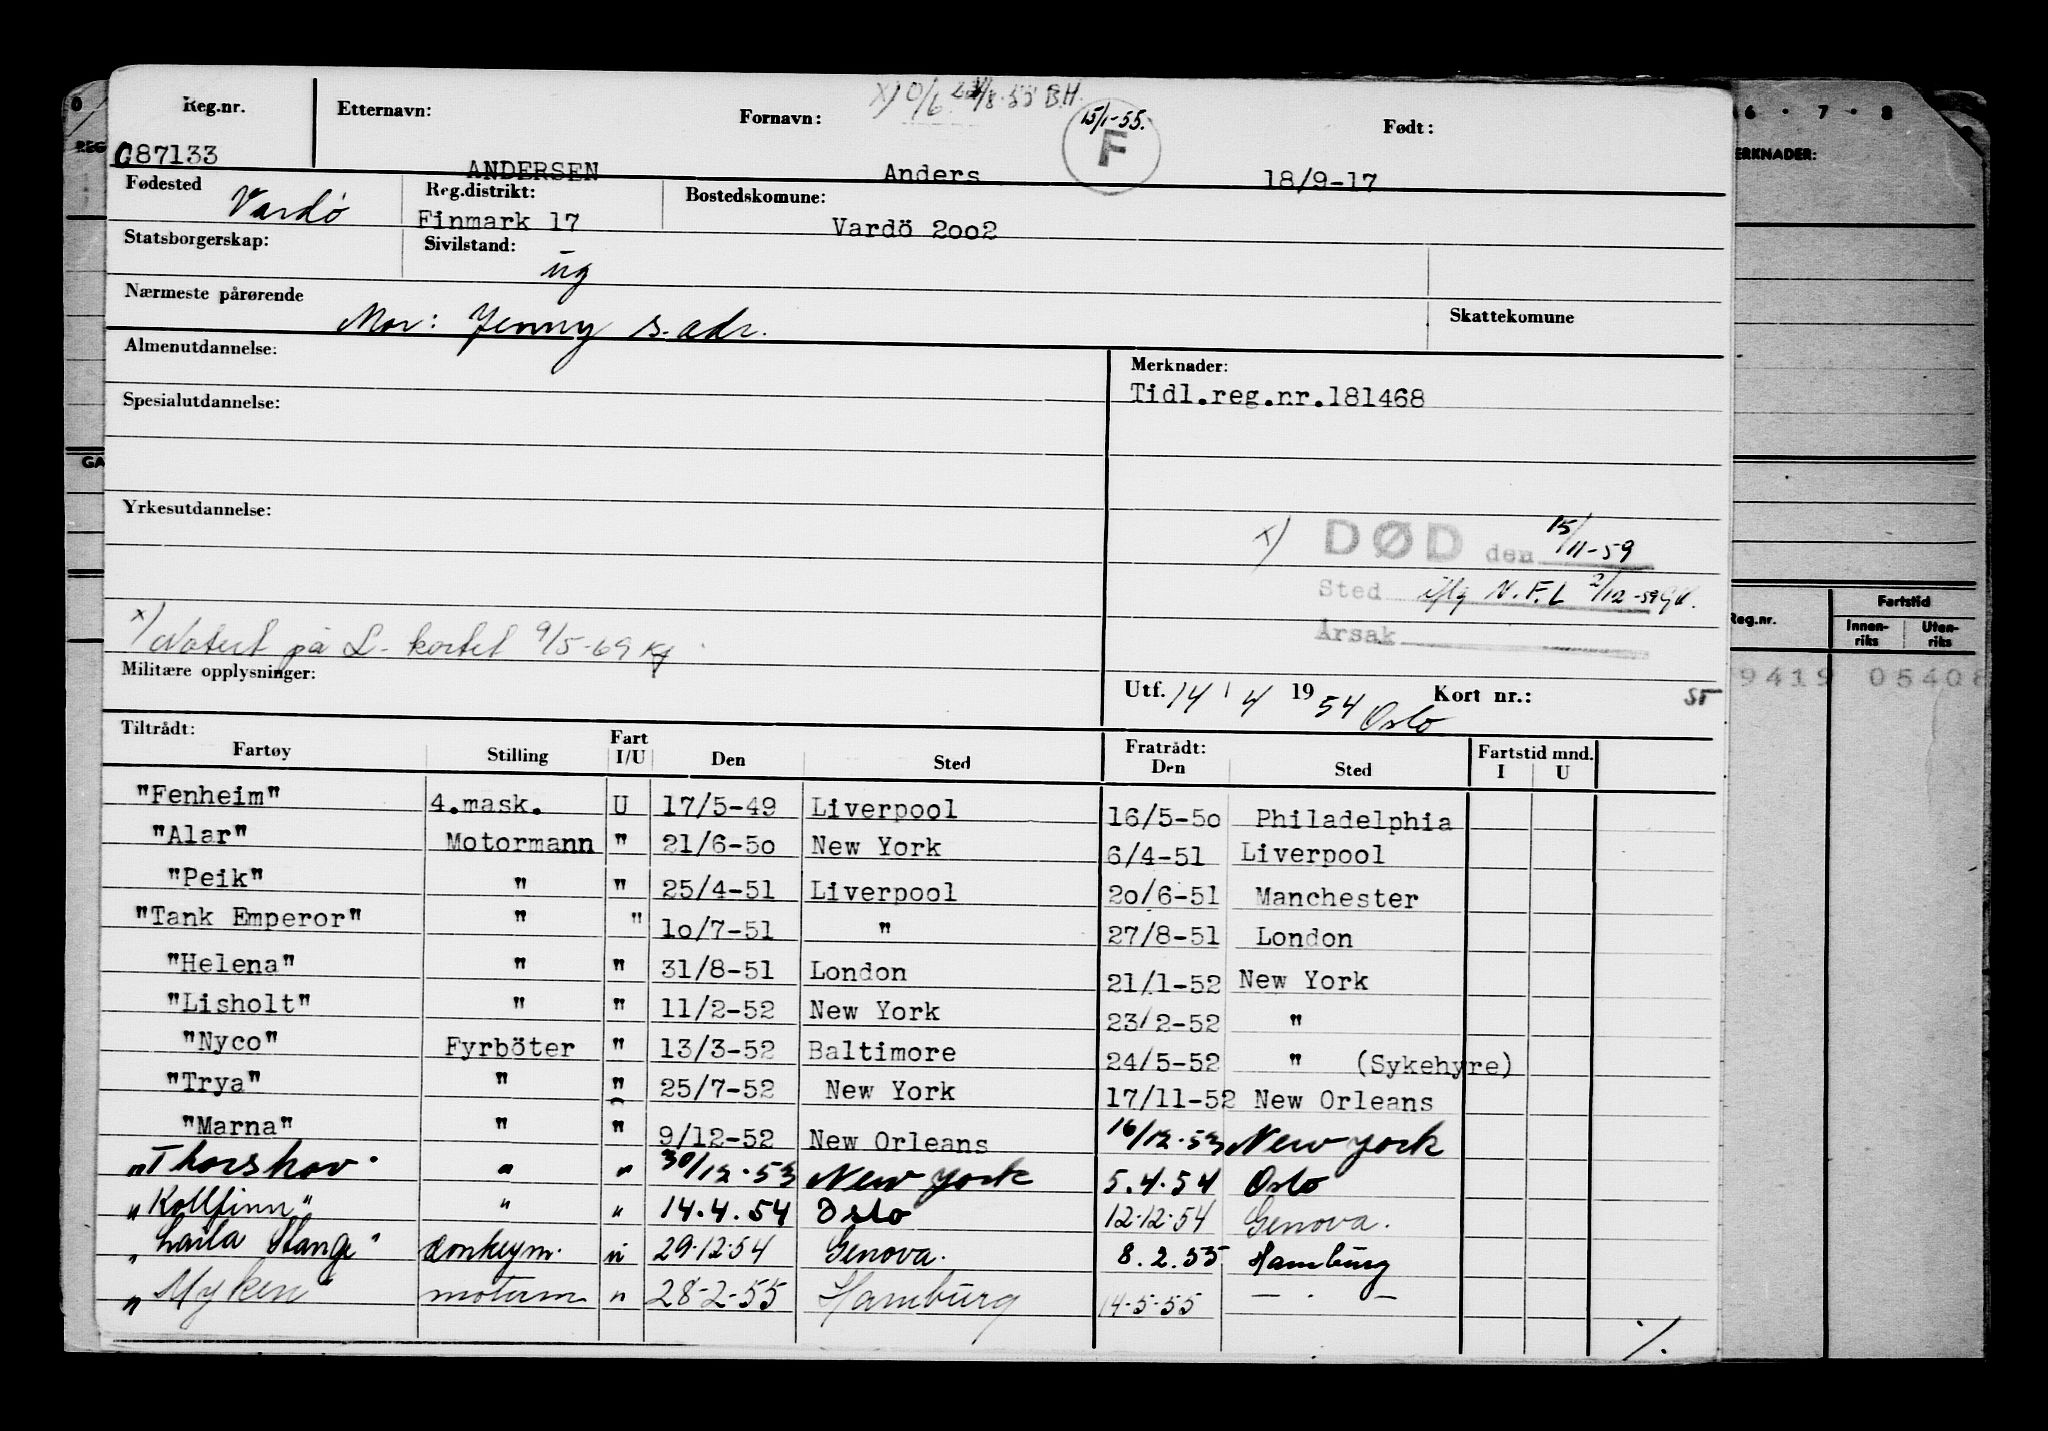 Reg.nr. Etternavn: Fornavn: Født:
x) 0/6 8-55 B.H.
15/1-55.
F
087133 ANDERSEN Anders 18/9-17
Fødested Vardø Reg.distrikt: Finmark 17 Bostedskomune: Vardö 2oo2
Statsborgerskap: Sivilstand: ug
Nærmeste pårørende Mor: Jenny s. adr. Skattekomune
Almenutdannelse: Merknader:
Tidl.reg.nr.181468
Spesialutdannelse:
Yrkesutdannelse:
x) DØD den 15/11-59
Sted iflg N.F.L 2/12-59
Årsak
x) Notert på L- kortet 9/5-69
Militære opplysninger: Utf. 14/4 1954 Oslo Kort nr.: ST
Tiltrådt: Fratrådt: Fartstid mnd.
Fartøy Stilling Fart I/U Den Sted Den Sted I U
"Fenheim" 4.mask. U 17/5-49 Liverpool 16/5-5o Philadelphia
"Alar" Motormann " 21/6-5o New York 6/4-51 Liverpool
"Peik" " " 25/4-51 Liverpool 2o/6-51 Manchester
"Tank Emperor" " " 1o/7-51 " 27/8-51 London
"Helena" " " 31/8-51 London 21/1-52 New York
"Lisholt" " " 11/2-52 New York 23/2-52 "
"Nyco" Fyrböter " 13/3-52 Baltimore 24/5-52 " (Sykehyre)
"Trya" " " 25/7-52 New York 17/11-52 New Orleans
"Marna" " " 9/12-52 New Orleans 16/12-53 New York
"Thorshov" " " 30/12-53 New York 5.4.54 Oslo
"Kollfinn" " " 14.4.54 Oslo 12.12.54 Genova.
"Laila Stange" donkeym. " 29.12.54 Genova. 8.2.55 Hamburg
"Myken" motorm " 28-2-55 Hamburg 14-5-55 — " —
%
0
REG
GA
6 · 7 · 8
ERKNADER:
Reg.nr. Fartstid
Innen-riks Uten-riks
9419 05408